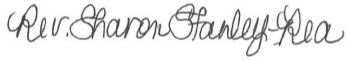 Rev. Sharon Stanley-Rea